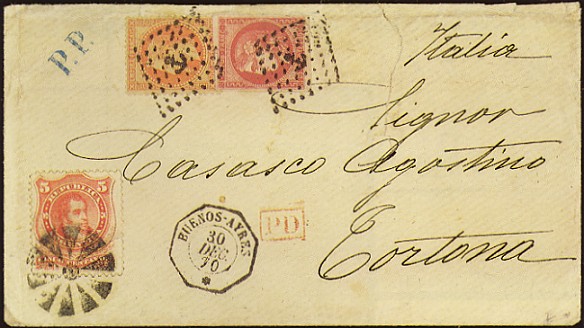 P.P.
Italia
Signor
Casasco Agostino
Tortona
5 REPUBLICA 5
BUENOS-AYRES
30
DEC.
70
PD